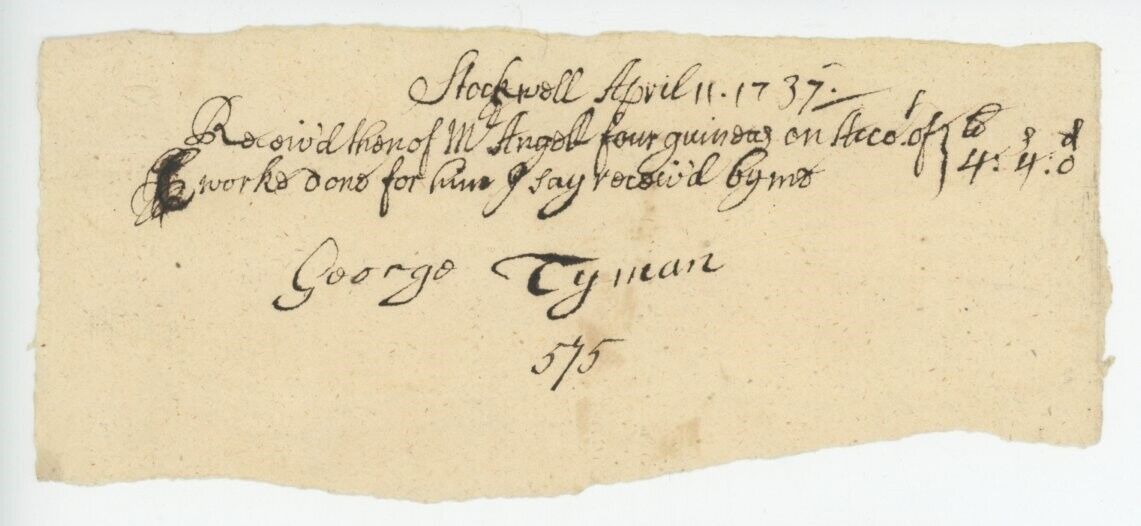 Stockwell April 11. 1737.
Receiv'd then of Mr Angell four guineas on Acco.t of } lb s d
worke done for him I say receiv'd by me } 4: 4: 0
George Tyman
575